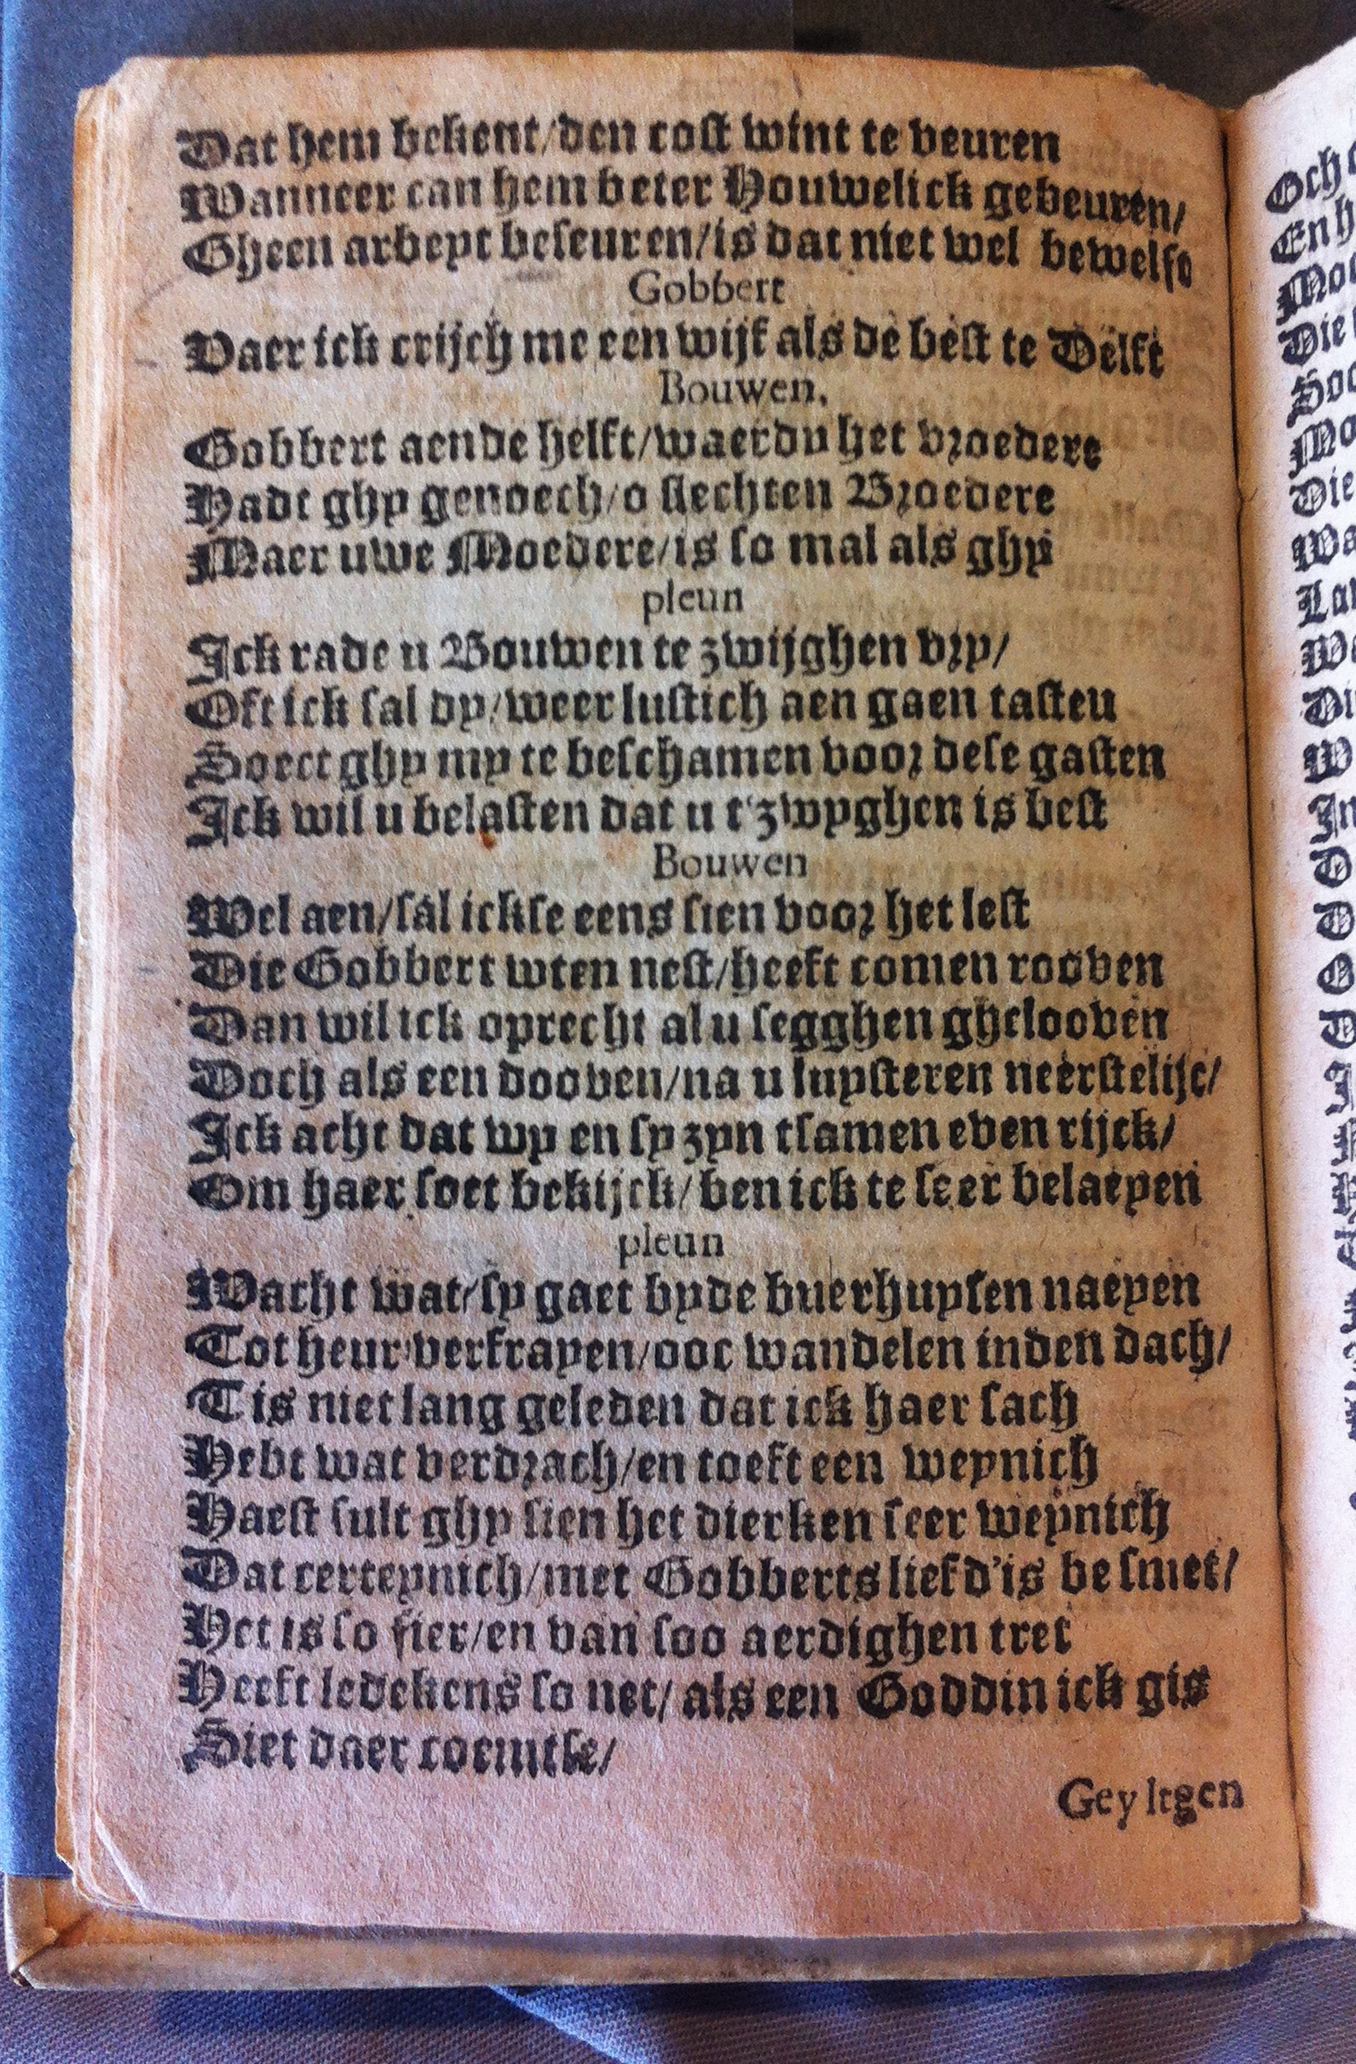 Dat hem bekent/den cost wint te veuren
Wanneer can hem beter Houwelick gebeuren/
Gheen arbeyt beseuren/is dat niet wel bewelft
Gobbert
Vaer ick crijch me een wijf als de best te Delft
Bouwen.
Gobbert aende helft/waerdu het vroedere
Hadt ghy genoech/o slechten Broedere
Maer uwe Moedere/is so mal als ghy
pleun
Ick rade u Bouwen te zwijghen vry/
Oft ick sal dy/weer lustich aen gaen tasteu
Soect ghy my te beschamen voor dese gasten
Ick wil u belasten dat u t'zwyghen is best
Bouwen
Wel aen/sal ickse eens sien voor het lest
Die Gobbert wten nest/heeft comen rooven
Dan wil ick oprecht al u segghen ghelooven
Doch als een dooven/na u luysteren neerstelijc/
Ick acht dat wy en sy zyn tsamen even rijck/
Om haer soet bekijck/ben ick te seer belaeyen
pleun
Wacht wat/sy gaet byde buerhuysen naeyen
Tot heur verfrayen/ooc wandelen inden dach/
Tis niet lang geleden dat ick haer sach
Hebt wat verdrach/en toeft een weynich
Haest sult ghy sien het dierken seer weynich
Dat certeynich/met Gobberts liefd'is be smet/
Het is so fier/en van soo aerdighen tret
Heeft ledekens so net/als een Goddin ick gis
Siet daer coemtse/
Gey ltgen
Och
En h
Die
Die
Wa
Wa
Di
W
In
D
D
O
D